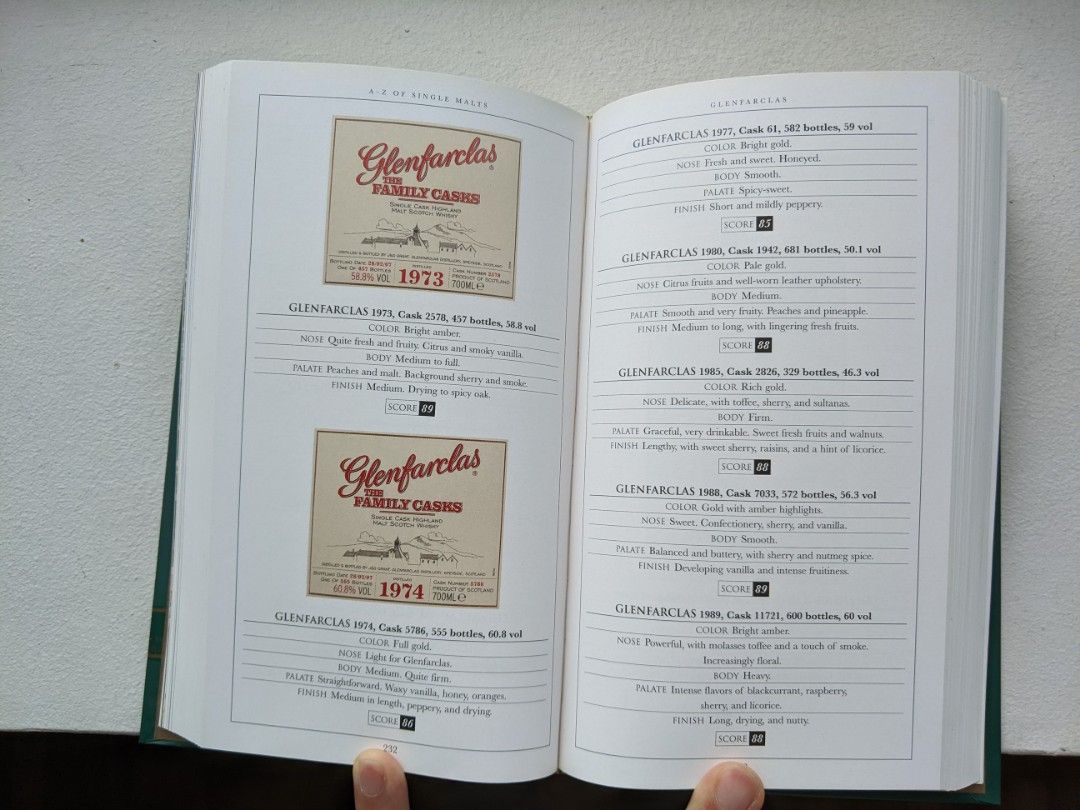 A–Z OF SINGLE MALTS
Glenfarclas®
THE
FAMILY CASKS
SINGLE CASK HIGHLAND
MALT SCOTCH WHISKY
DISTILLED & BOTTLED BY J&G GRANT, GLENFARCLAS DISTILLERY, SPEYSIDE, SCOTLAND
BOTTLING DATE
ONE OF 457 BOTTLES
58.8% VOL
DISTILLED
1973
CASK NUMBER 2578
PRODUCT OF SCOTLAND
700ML℮
GLENFARCLAS 1973, Cask 2578, 457 bottles, 58.8 vol
COLOR Bright amber.
NOSE Quite fresh and fruity. Citrus and smoky vanilla.
BODY Medium to full.
PALATE Peaches and malt. Background sherry and smoke.
FINISH Medium. Drying to spicy oak.
SCORE 89
Glenfarclas®
THE
FAMILY CASKS
SINGLE CASK HIGHLAND
MALT SCOTCH WHISKY
DISTILLED & BOTTLED BY J&G GRANT, GLENFARCLAS DISTILLERY, SPEYSIDE, SCOTLAND
BOTTLING DATE
ONE OF 555 BOTTLES
60.8% VOL
DISTILLED
1974
CASK NUMBER 5786
PRODUCT OF SCOTLAND
700ML℮
GLENFARCLAS 1974, Cask 5786, 555 bottles, 60.8 vol
COLOR Full gold.
NOSE Light for Glenfarclas.
BODY Medium. Quite firm.
PALATE Straightforward. Waxy vanilla, honey, oranges.
FINISH Medium in length, peppery, and drying.
SCORE 86
232
GLENFARCLAS
GLENFARCLAS 1977, Cask 61, 582 bottles, 59 vol
COLOR Bright gold.
NOSE Fresh and sweet. Honeyed.
BODY Smooth.
PALATE Spicy-sweet.
FINISH Short and mildly peppery.
SCORE 85
GLENFARCLAS 1980, Cask 1942, 681 bottles, 50.1 vol
COLOR Pale gold.
NOSE Citrus fruits and well-worn leather upholstery.
BODY Medium.
PALATE Smooth and very fruity. Peaches and pineapple.
FINISH Medium to long, with lingering fresh fruits.
SCORE 88
GLENFARCLAS 1985, Cask 2826, 329 bottles, 46.3 vol
COLOR Rich gold.
NOSE Delicate, with toffee, sherry, and sultanas.
BODY Firm.
PALATE Graceful, very drinkable. Sweet fresh fruits and walnuts.
FINISH Lengthy, with sweet sherry, raisins, and a hint of licorice.
SCORE 88
GLENFARCLAS 1988, Cask 7033, 572 bottles, 56.3 vol
COLOR Gold with amber highlights.
NOSE Sweet. Confectionery, sherry, and vanilla.
BODY Smooth.
PALATE Balanced and buttery, with sherry and nutmeg spice.
FINISH Developing vanilla and intense fruitiness.
SCORE 89
GLENFARCLAS 1989, Cask 11721, 600 bottles, 60 vol
COLOR Bright amber.
NOSE Powerful, with molasses toffee and a touch of smoke.
Increasingly floral.
BODY Heavy.
PALATE Intense flavors of blackcurrant, raspberry,
sherry, and licorice.
FINISH Long, drying, and nutty.
SCORE 88